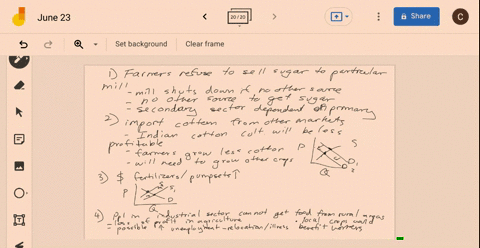 June 23
20/20
Share
C
Set background
Clear frame
1) Farmers refuse to sell sugar to particular
mill
- mill shuts down if no other source
- no other source to get sugar
- secondary sector dependent on primary
2) import cotton from other markets
- Indian cotton cult will be less
profitable
- farmers grow less cotton
- will need to grow other crops
P
S
D,
D2
Q
3) $ fertilizers/pumpsets↑
P
S,
S
D
Q
4) Ppl in industrial sector cannot get food from rural areas
- loss of profit in agriculture
· local crops would
possible ↑ unemployment - relocation/illness
benefit workers